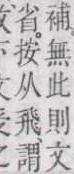 補無此則文
省按从飛謂